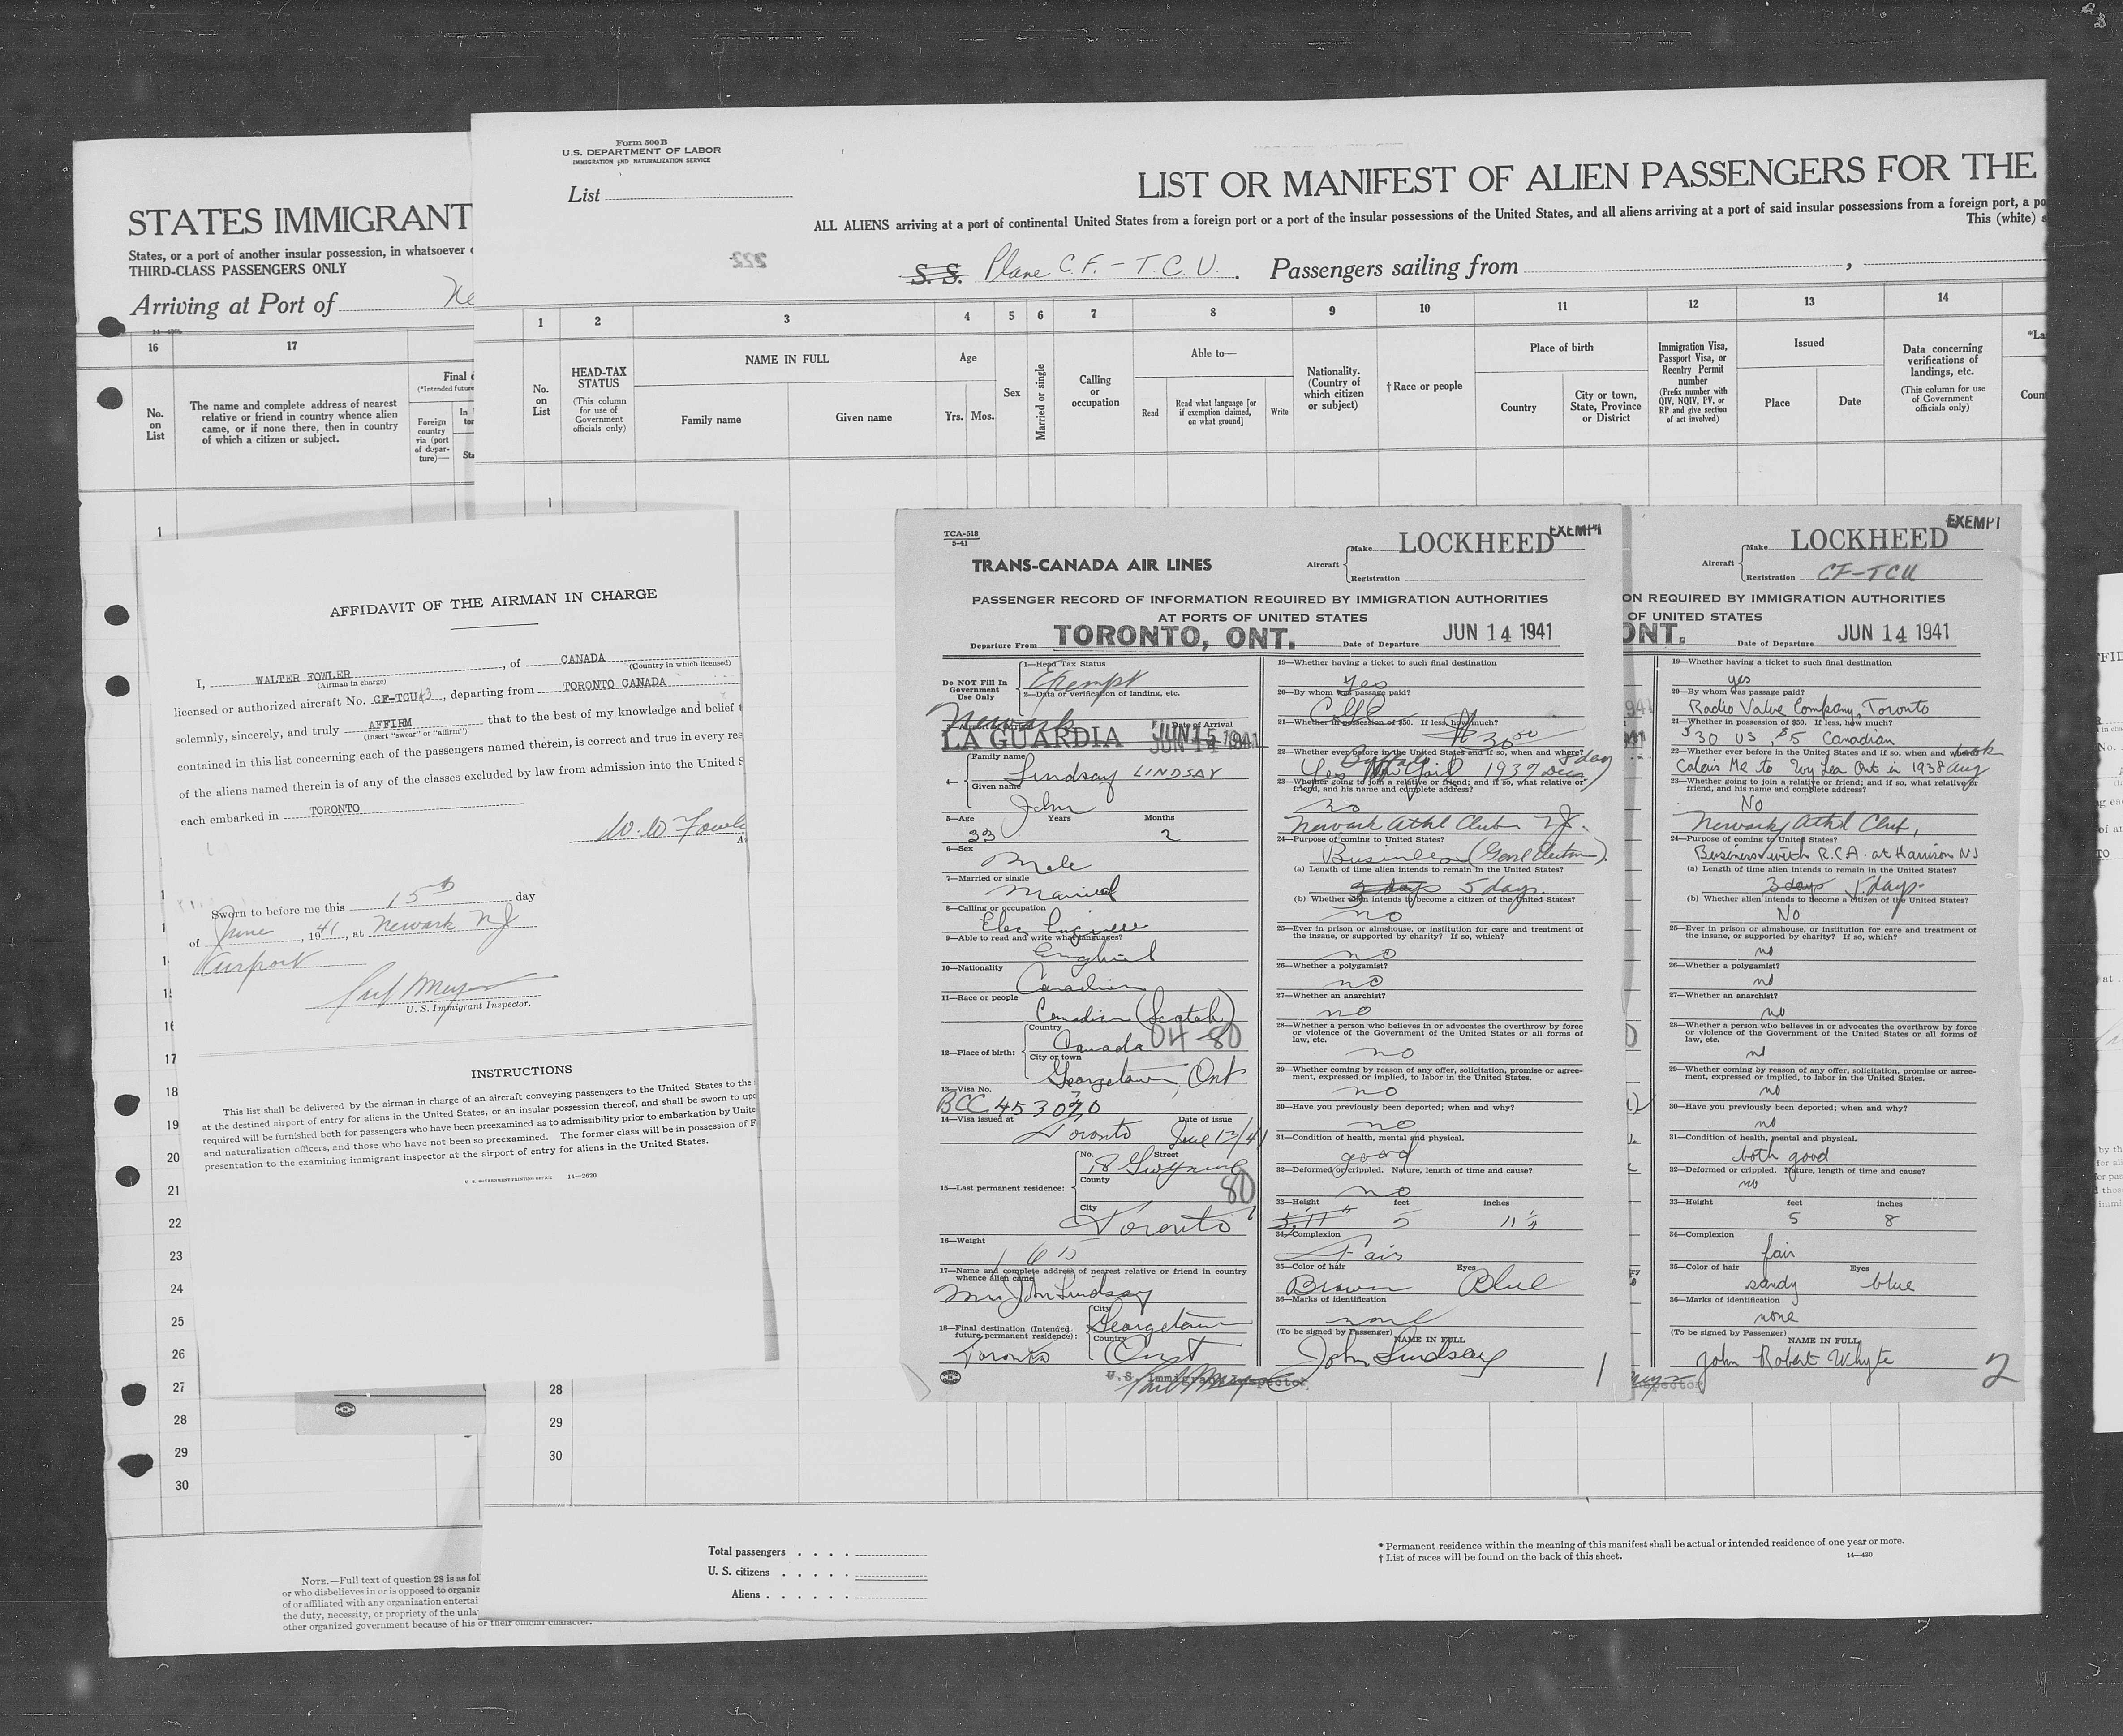 STATES IMMIGRANT
States, or a port of another insular possession, in whatsoever
THIRD-CLASS PASSENGERS ONLY
Arriving at Port of Ne
16
17
No. on List
The name and complete address of nearest
relative or friend in country whence alien
came, or if none there, then in country
of which a citizen or subject.
Final
(*Intended future
Foreign
country
via (port
of depar-
ture)—
1
Form 500 B
U.S. DEPARTMENT OF LABOR
IMMIGRATION AND NATURALIZATION SERVICE
List
LIST OR MANIFEST OF ALIEN PASSENGERS FOR THE
ALL ALIENS arriving at a port of continental United States from a foreign port or a port of the insular possessions of the United States, and all aliens arriving at a port of said insular possessions from a foreign port, a po
This (white) s
222
S. S. Plane C.F.-T.C.U. Passengers sailing from
1 2 3 4 5 6 7 8 9 10 11 12 13 14
No. on List
HEAD-TAX STATUS
(This column for use of Government officials only)
NAME IN FULL
Family name
Given name
Age
Yrs. Mos.
Sex
Married or single
Calling or occupation
Able to—
Read
Read what language [or if exemption claimed, on what ground]
Write
Nationality. (Country of which citizen or subject)
† Race or people
Place of birth
Country
City or town, State, Province or District
Immigration Visa, Passport Visa, or Reentry Permit number
(Prefix number with QIV, NQIV, PV, or RP and give section of act involved)
Issued
Place
Date
Data concerning verifications of landings, etc.
(This column for use of Government officials only)
*La
Coun
1
AFFIDAVIT OF THE AIRMAN IN CHARGE
I, WALTER FOWLER, of CANADA
(Airman in charge) (Country in which licensed)
licensed or authorized aircraft No. CF-TCU, departing from TORONTO CANADA
solemnly, sincerely, and truly AFFIRM that to the best of my knowledge and belief t
(Insert "swear" or "affirm")
contained in this list concerning each of the passengers named therein, is correct and true in every res
of the aliens named therein is of any of the classes excluded by law from admission into the United S
each embarked in TORONTO
W. W. Fowle
Sworn to before me this 15th day
of June, 1941, at Newark NJ
Airport
U. S. Immigrant Inspector.
INSTRUCTIONS
This list shall be delivered by the airman in charge of an aircraft conveying passengers to the United States to the
at the destined airport of entry for aliens in the United States, or an insular possession thereof, and shall be sworn to upo
required will be furnished both for passengers who have been preexamined as to admissibility prior to embarkation by Unite
and naturalization officers, and those who have not been so preexamined. The former class will be in possession of F
presentation to the examining immigrant inspector at the airport of entry for aliens in the United States.
U. S. GOVERNMENT PRINTING OFFICE 14—2620
16
17
18
19
20
21
22
23
24
25
26
27
28
29
30
TCA-518
5-41
TRANS-CANADA AIR LINES
EXEMPT
Aircraft Make LOCKHEED
Registration
PASSENGER RECORD OF INFORMATION REQUIRED BY IMMIGRATION AUTHORITIES
AT PORTS OF UNITED STATES
Departure From TORONTO, ONT. Date of Departure JUN 14 1941
Do NOT Fill In
Government
Use Only
1—Head Tax Status
Exempt
2—Data or verification of landing, etc.
Newark
Date of Arrival
LA GUARDIA JUN 15 1941
4— Family name
Lindsay LINDSAY
Given name
John
5—Age Years Months
33 2
6—Sex
Male
7—Married or single
Married
8—Calling or occupation
Elec Engineer
9—Able to read and write what languages?
English
10—Nationality
Canadian
11—Race or people
Canadian (Scotch)
12—Place of birth: Country
Canada 04-80
City or town
Georgetown, Ont
13—Visa No.
BCC 453020
14—Visa issued at Date of issue
Toronto June 13/41
15—Last permanent residence: No. Street
18 Gwynne
County
80
City
Toronto
16—Weight
17—Name and complete address of nearest relative or friend in country
whence alien came
Mrs John Lindsay
18—Final destination (Intended
future permanent residence):
City
Georgetown
Country
Toronto Ont
U.S. Immigrant Inspector
19—Whether having a ticket to such final destination
Yes
20—By whom was passage paid?
21—Whether in possession of $50. If less, how much?
$30.00
22—Whether ever before in the United States and if so, when and where?
Buffalo 5 day
Yes 1937 Dec
23—Whether going to join a relative or friend; and if so, what relative or
friend, and his name and complete address?
no
Newark Athl Club NJ.
24—Purpose of coming to United States?
Business
(a) Length of time alien intends to remain in the United States?
3 days 5 days.
(b) Whether alien intends to become a citizen of the United States?
no
25—Ever in prison or almshouse, or institution for care and treatment of
the insane, or supported by charity? If so, which?
no
26—Whether a polygamist?
no
27—Whether an anarchist?
no
28—Whether a person who believes in or advocates the overthrow by force
or violence of the Government of the United States or all forms of
law, etc.
no
29—Whether coming by reason of any offer, solicitation, promise or agree-
ment, expressed or implied, to labor in the United States.
no
30—Have you previously been deported; when and why?
no
31—Condition of health, mental and physical.
good
32—Deformed or crippled. Nature, length of time and cause?
no
33—Height feet inches
5'11" 5 11 1/4
34—Complexion
Fair
35—Color of hair Eyes
Brown Blue
36—Marks of identification
none
(To be signed by Passenger) NAME IN FULL
John Lindsay
1
EXEMPT
Aircraft Make LOCKHEED
Registration CF-TCU
ON REQUIRED BY IMMIGRATION AUTHORITIES
OF UNITED STATES
ONT. Date of Departure JUN 14 1941
19—Whether having a ticket to such final destination
yes
20—By whom was passage paid?
Radio Valve Company, Toronto
21—Whether in possession of $50. If less, how much?
$30 US, $5 Canadian
22—Whether ever before in the United States and if so, when and where
Calais Me to Ont in 1938 Aug
23—Whether going to join a relative or friend; and if so, what relative or
friend, and his name and complete address?
No
Newark Athl Club,
24—Purpose of coming to United States?
Business with R.C.A. at Harrison NJ
(a) Length of time alien intends to remain in the United States?
3 days 5 days
(b) Whether alien intends to become a citizen of the United States?
No
25—Ever in prison or almshouse, or institution for care and treatment of
the insane, or supported by charity? If so, which?
no
26—Whether a polygamist?
no
27—Whether an anarchist?
no
28—Whether a person who believes in or advocates the overthrow by force
or violence of the Government of the United States or all forms of
law, etc.
no
29—Whether coming by reason of any offer, solicitation, promise or agree-
ment, expressed or implied, to labor in the United States.
no
30—Have you previously been deported; when and why?
no
31—Condition of health, mental and physical.
both good
32—Deformed or crippled. Nature, length of time and cause?
no
33—Height feet inches
5 8
34—Complexion
fair
35—Color of hair Eyes
sandy blue
36—Marks of identification
none
(To be signed by Passenger) NAME IN FULL
John Robert Whyte
2
28
29
30
Total passengers
U. S. citizens
Aliens
* Permanent residence within the meaning of this manifest shall be actual or intended residence of one year or more.
† List of races will be found on the back of this sheet. 14—430
NOTE.—Full text of question 28 is as fol
or who disbelieves in or is opposed to organiz
of or affiliated with any organization entertai
the duty, necessity, or propriety of the unla
other organized government because of his or their official character.